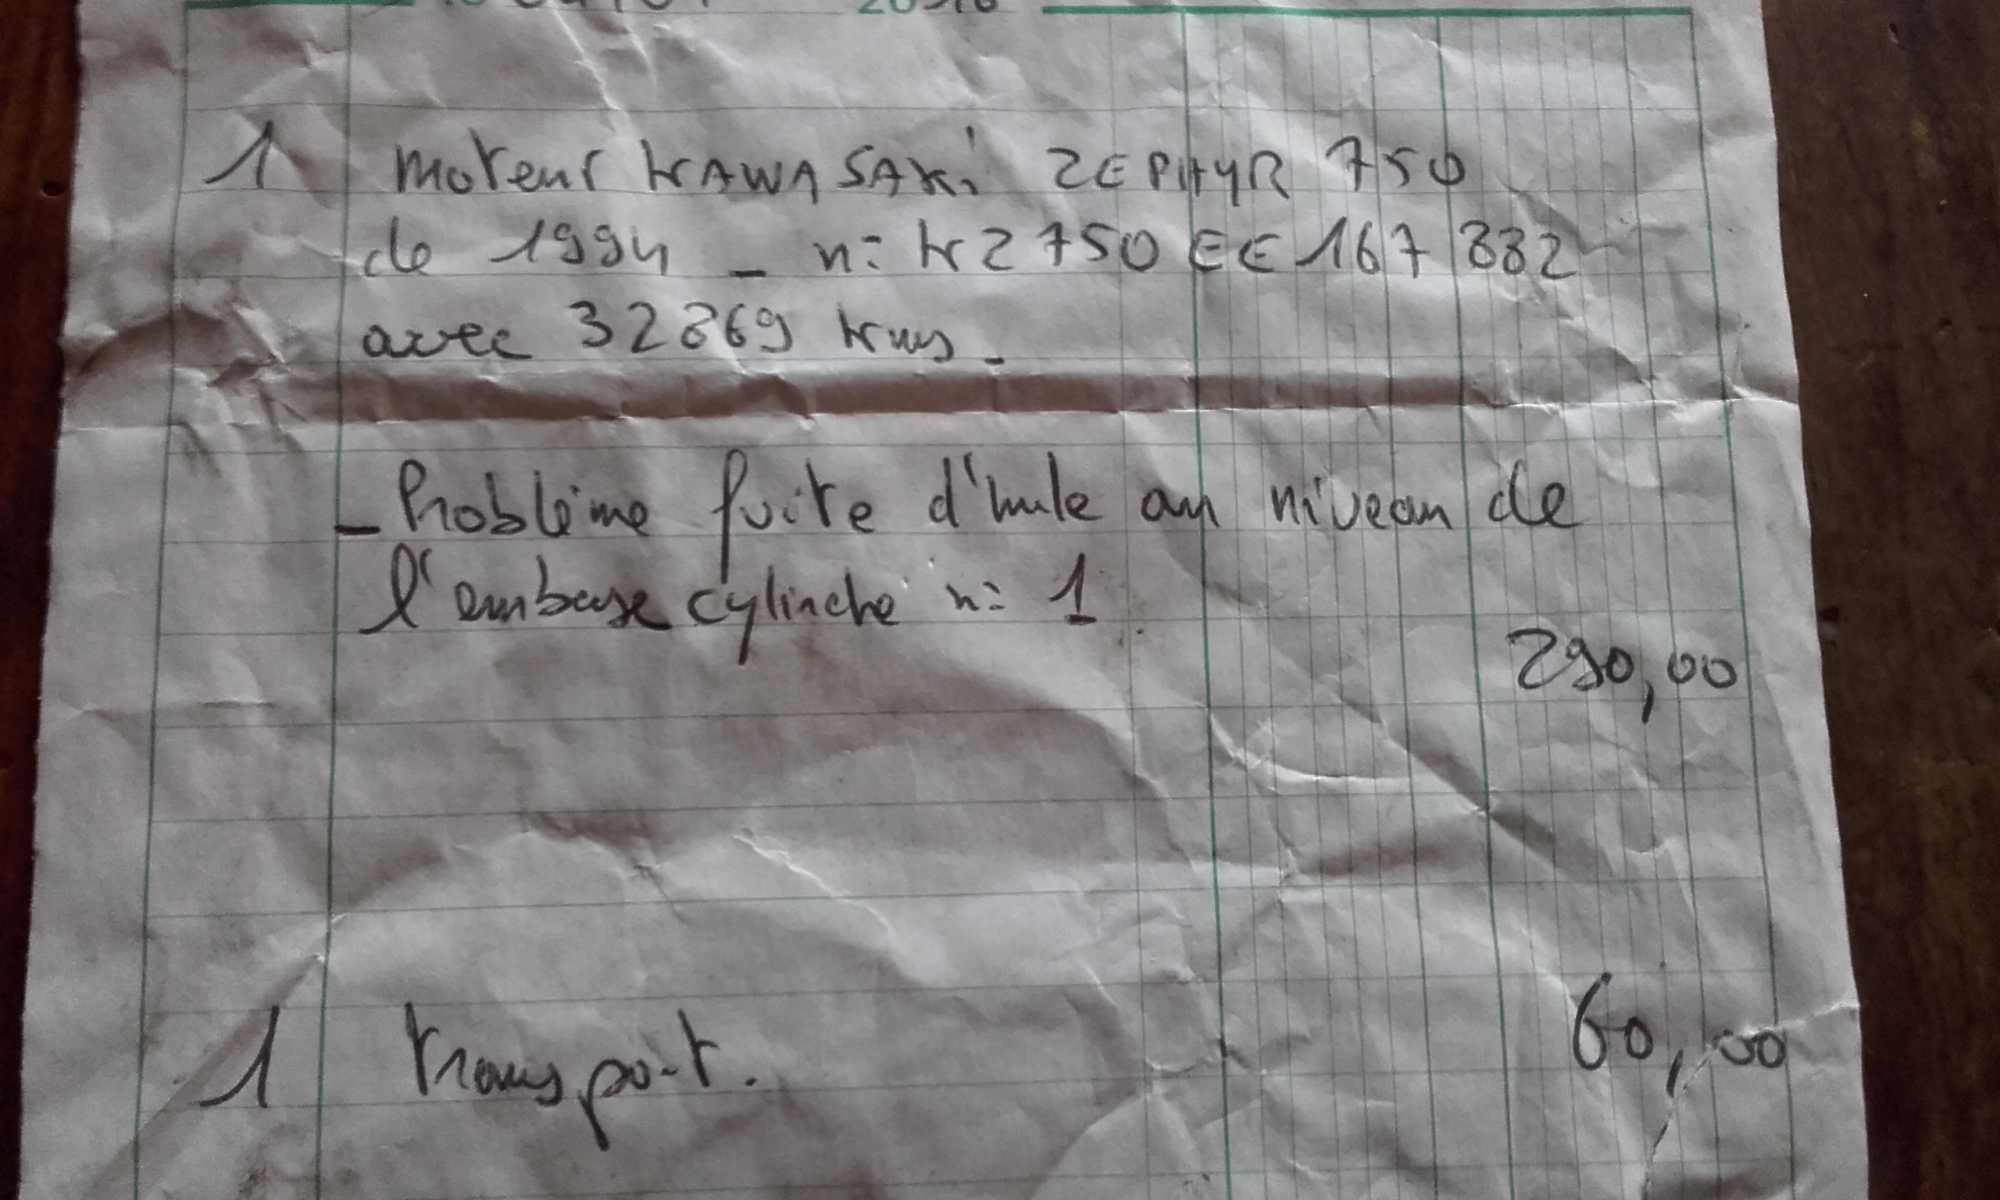 1 moteur KAWASAKi ZEPHYR 750
de 1994 - n: KZ750EE167882
avec 32869 kms.
- Problème fuite d'huile au niveau de
l'embase cylindre n: 1
290,00
1 transport. 60,00